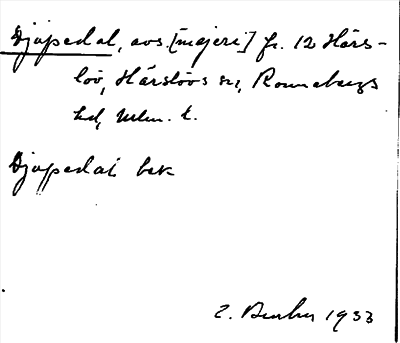 Djupedal, avs. [mejeri] fr. 12 Härs-
löv, Härslövs sn, Rönnebergs
hd, Mlm. l.
Djupedal bek
1933